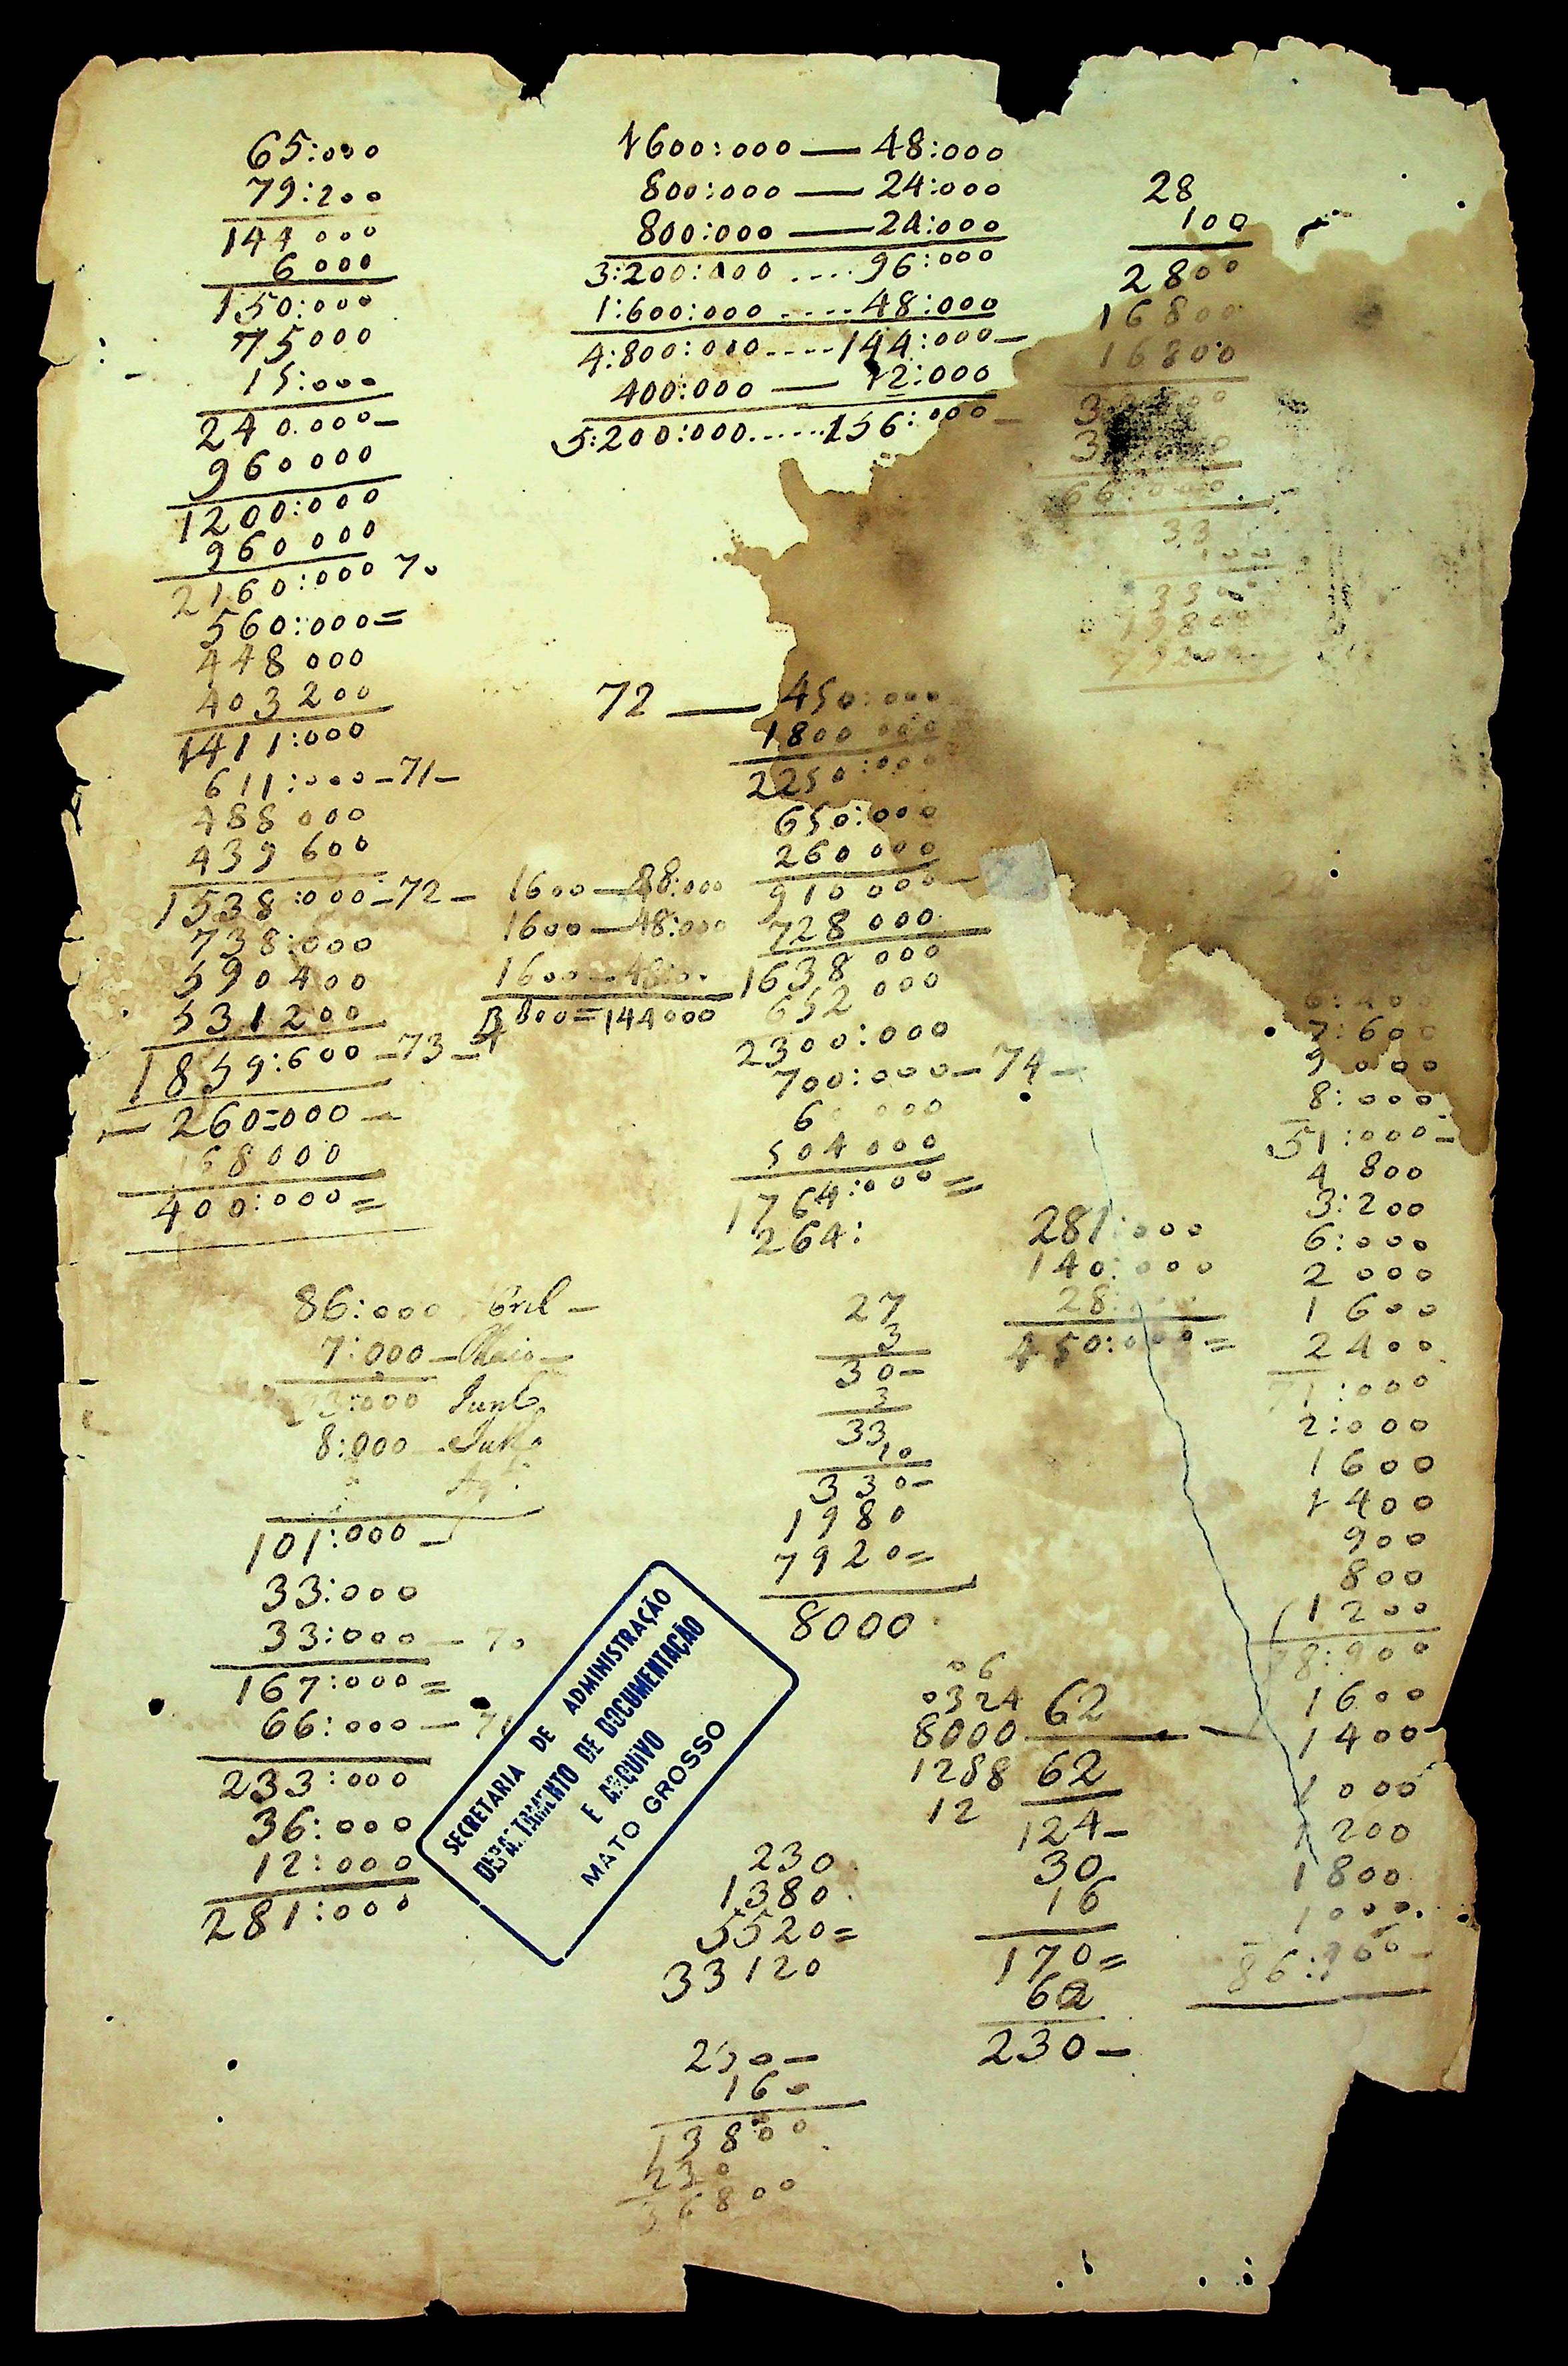 65:000
79:200
144 000
6 000
150:000
75000
15:000
240.000-
960000
1200:000
960 000
2160:000 70
560:000=
448 000
403 200
1411:000
611:000-71-
488 000
439 600
1538:000-72-
738:000
590 400
531200
1859:600-73-
- 260=000-
68000
400:000=
86:000
7:000-Maio-
3:000 Junho
8:000-Julho
Agto
101:000-
33:000
33:000-70
167:000=
66:000-
233:000
36:000
12:000
281:000
1600:000 — 48:000
800:000 — 24:000
800:000 — 24:000
3:200:000 .... 96:000
1:600:000 ..... 48:000
4:800:000....144:000-
400:000 — 12:000
5:200:000.....156:000-
72 — 450:000
1800 000
2250:000
650:000
260000
910000-
728 000
1638 000
652 000
2300:000
700:000-74-
6 000
504 000
1764:000=
264:
1600-48:000
1600-48:000
1600-48
800=144000
27
3
30-
3
33
10
330-
1980
7920=
8000
06
0324 62
8000
1288 62
12 124-
30
16
170=
62
230-
230
1380
5520=
33120
230-
160
13800
230
36800
28
100
2800
16800
16800
66:000
33
100
33
79200
281:000
140:000
28:
450:000=
7:600
9 000
8:000
51:000-
4 800
3:200
6:000
2 000
1 600
2400
71:000
2:000
1600
1400
900
800
1200
78:900
1600
1400
1000
1200
1800
1000
86:900
SECRETARIA DE ADMINISTRAÇÃO
DEPARTAMENTO DE DOCUMENTAÇÃO
E ARQUIVO
MATO GROSSO